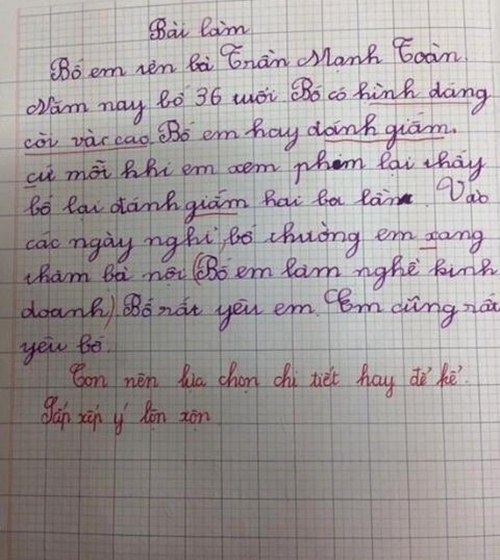 Bài làm
Bố em tên là Trần Mạnh Toàn.
Năm nay bố 36 tuổi Bố có hình dáng
còi và cao. Bố em hay đánh giắm.
cứ mỗi khi em xem phim lại thấy
bố lại đánh giắm hai ba lần. Vào
các ngày nghỉ, bố thường em xang
thăm bà nội (Bố em làm nghề kinh
doanh). Bố rất yêu em. Em cũng rất
yêu bố.
Con nên lựa chọn chi tiết hay để kể.
Sắp xếp ý lộn xộn